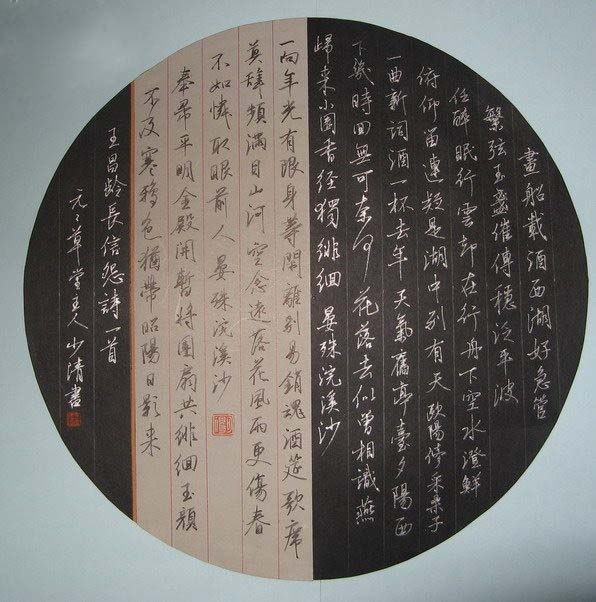 畫船載酒西湖好急管
繁弦玉盞催傳穩泛平波
任醉眠行雲却在行舟下空水澄鮮
俯仰留連疑是湖中别有天 歐陽修采桑子
一曲新詞酒一杯去年天氣舊亭臺夕陽西
下幾時回無可奈何花落去似曾相識燕
歸来小園香徑獨徘徊 晏殊浣溪沙
一向年光有限身等閒離别易銷魂酒筵歌席
莫辭頻滿目山河空念遠落花風雨更傷春
不如憐取眼前人 晏殊浣溪沙
奉帚平明金殿開暫將團扇共徘徊玉顔
不及寒鴉色猶帶昭陽日影来
王昌齡長信怨詩一首
元〻草堂主人少清書